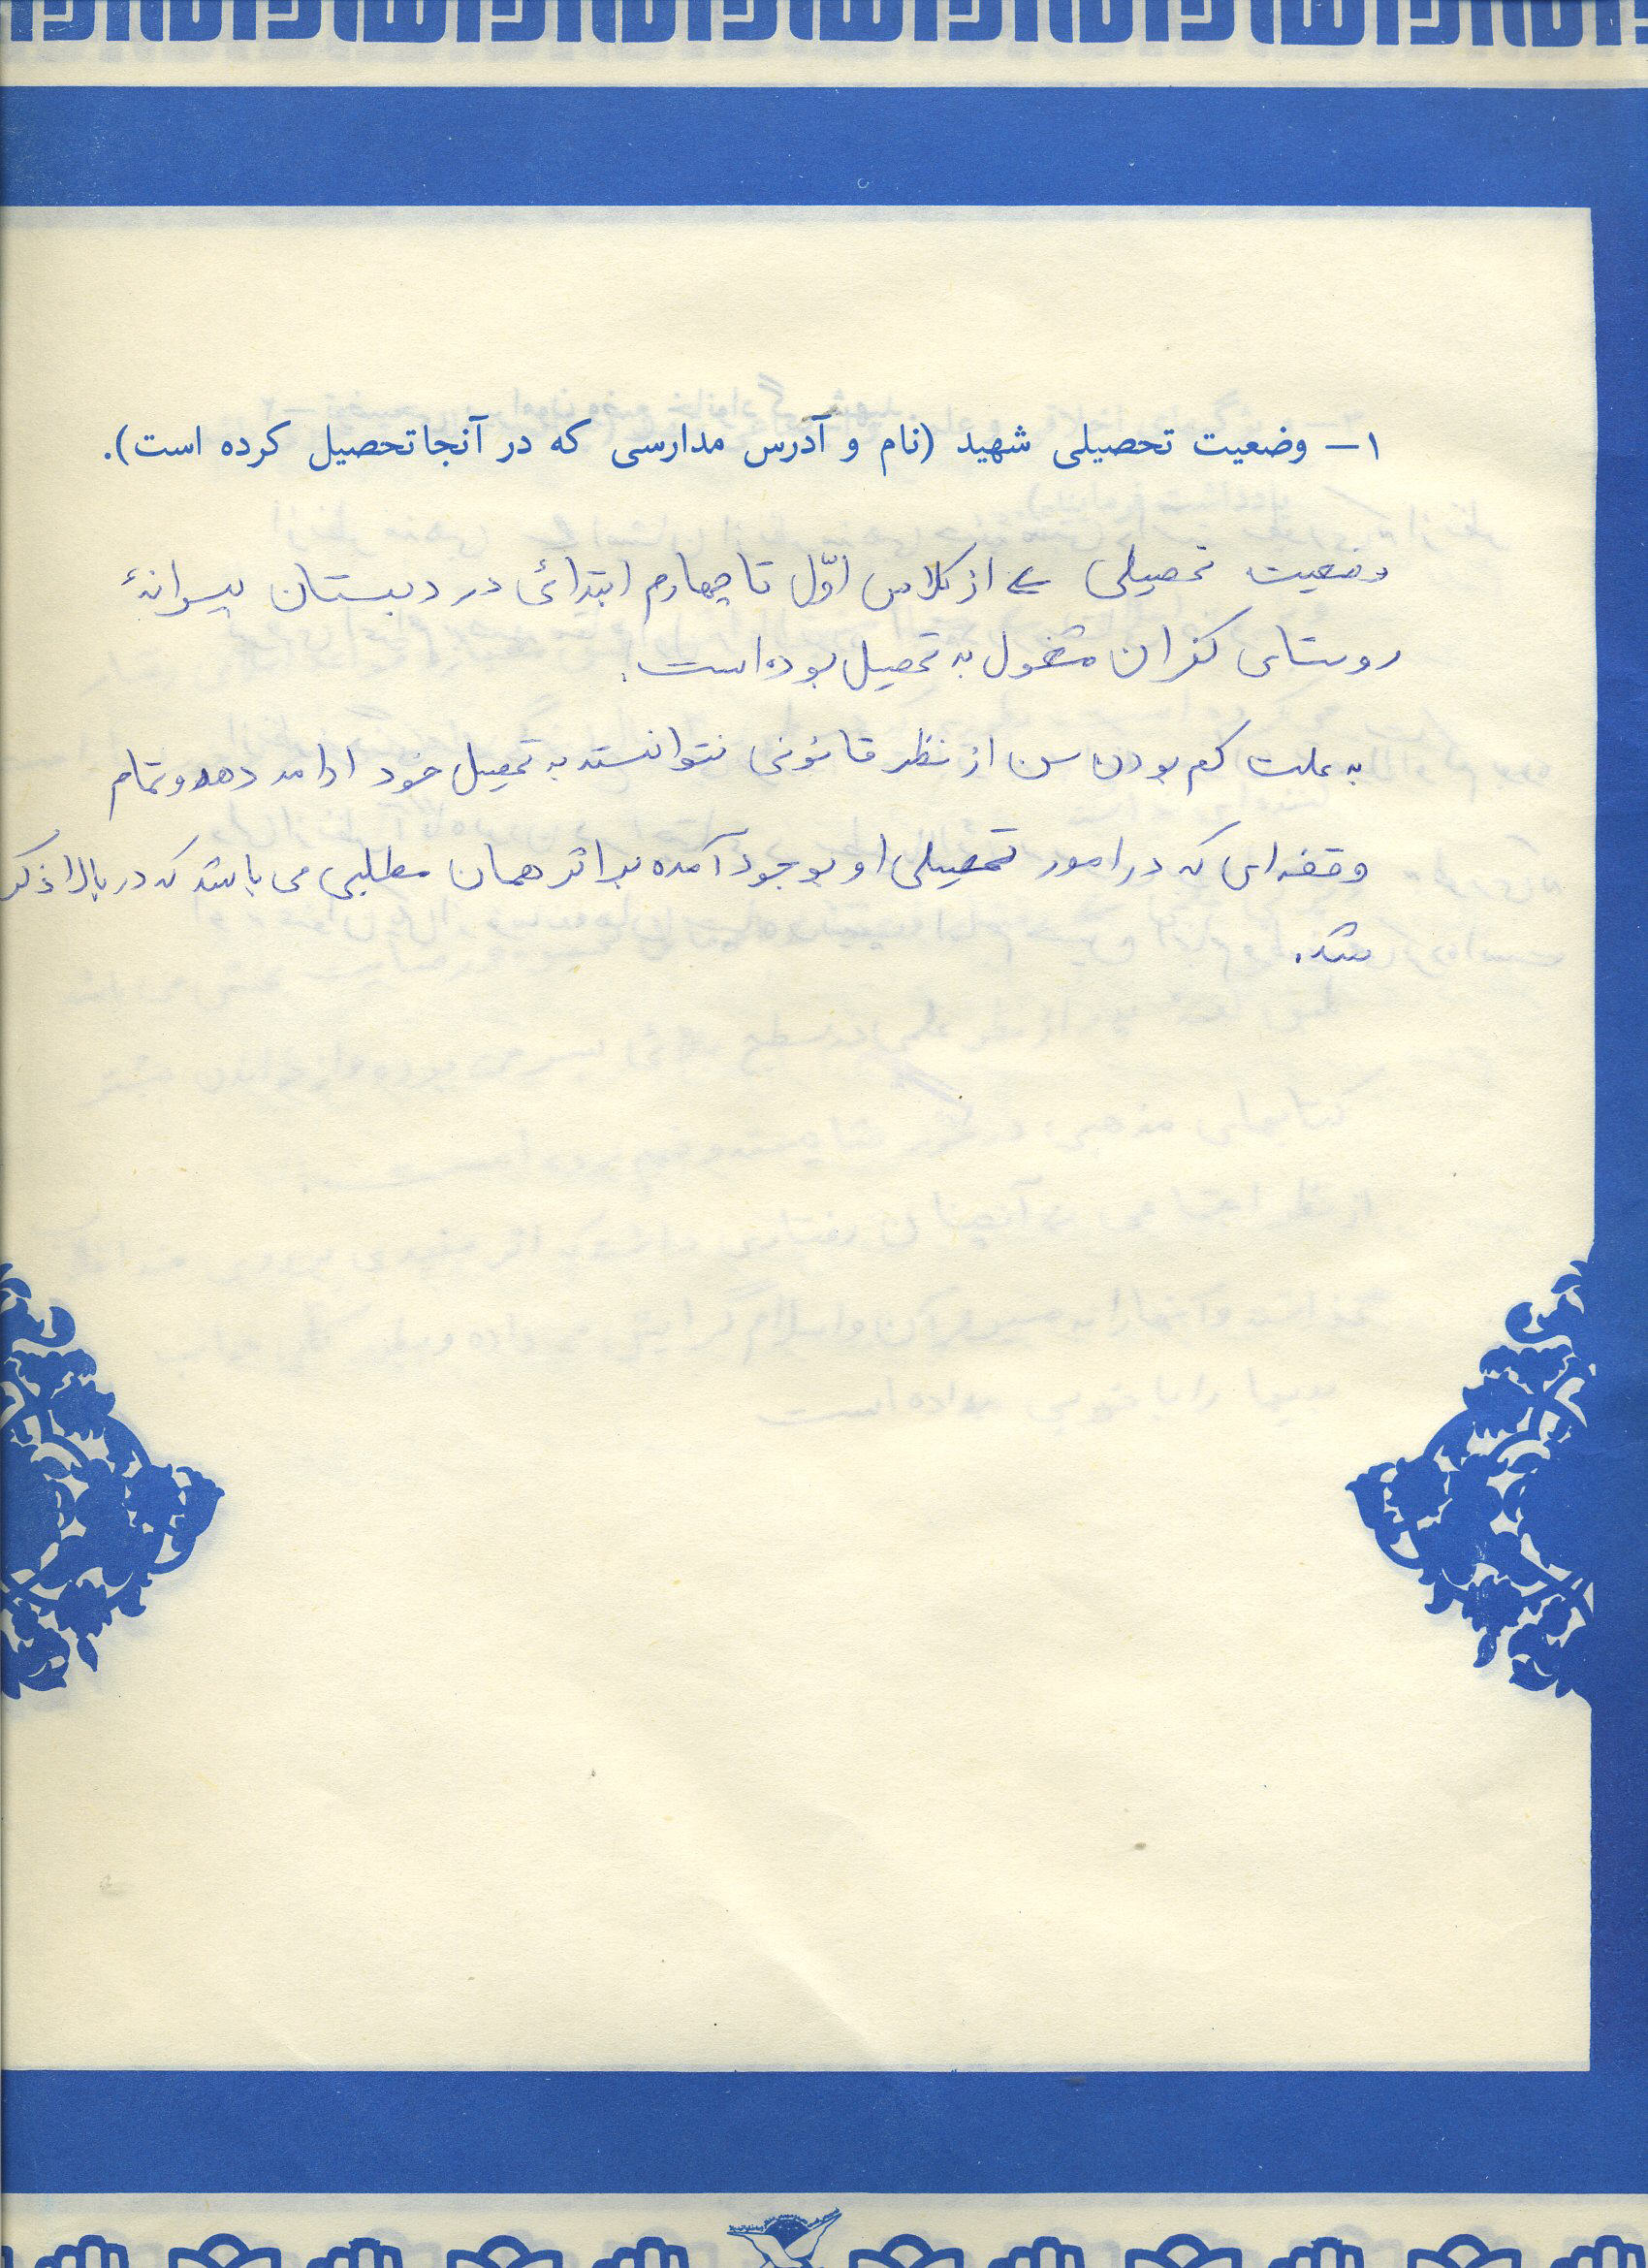 ۱- وضعیت تحصیلی شهید (نام و آدرس مدارسی که در آنجا تحصیل کرده است).
وضعیت تحصیلی ے از کلاس اوّل تا چهارم ابتدائی در دبستان پسرانهٔ
روستای کفران مشغول به تحصیل بوده است.
به علت کم بودن سن از نظر قانونی نتوانسته به تحصیل خود ادامه دهد و تمام
وقفه‌ای که در امور تحصیلی او بوجود آمده بر اثر همان مطلبی می باشد که در بالا ذکر
شد.